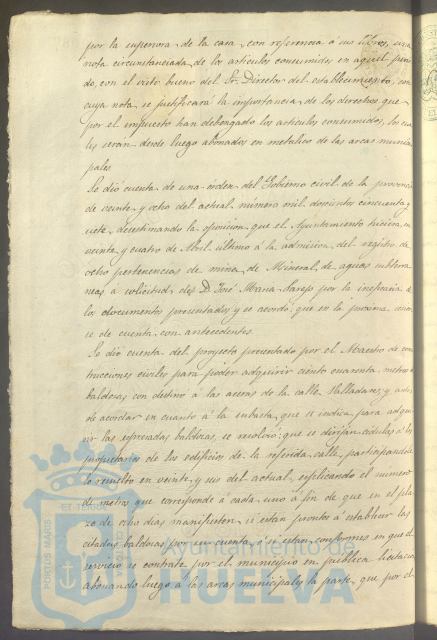 por la superiora de la casa, con referencia á sus libros, una
nota circunstanciada de los articulos consumidos en aquel perio
do, con el visto bueno del Sr. Director del establecimiento, con
cuya nota se justificará la importancia de los derechos que
por el impuesto han debengado los articulos consumidos, los cua
les seran desde luego abonados en metalico de las arcas munici
pales.
Se dió cuenta de una orden del Gobierno civil de la provincia
de veinte y ocho del actual, número mil doscientos cincuenta y
siete, desestimando la oposicion que el Ayuntamiento hiciera en
veinte y cuatro de Abril ultimo á la admision del registro de
ocho pertenencias de mina de Mineral, de aguas subterra
neas á solicitud de D. José Maria por la
los documentos presentados y se acordó, que en la procsima sesion
se de cuenta con antecedentes.
Se dió cuenta del proyecto presentado por el Maestro de cons
trucciones civiles para poder adquirir ciento cuarenta metros
baldosas con destino á las aceras de la calle Valladares y antes
de acordar en cuanto á la subasta, que se indica para adqui
rir las espresadas baldosas, se resolvió: que se dirijan cédulas á los
propietarios de los edificios de la referida calle, participandoles
lo resuelto en veinte y seis del actual, esplicando el numero
de metros que corresponde á cada uno á fin de que en el pla
zo de ocho dias manifiesten, si estan prontos á establecer las
citadas baldosas por su cuenta, ó si estan conformes en que el
servicio se contrate por el municipio en publica licitacion
abonando luego á las arcas municipales la parte, que por el
PORTUS MARIS
ET TERRÆ
Ayuntamiento de
HUELVA